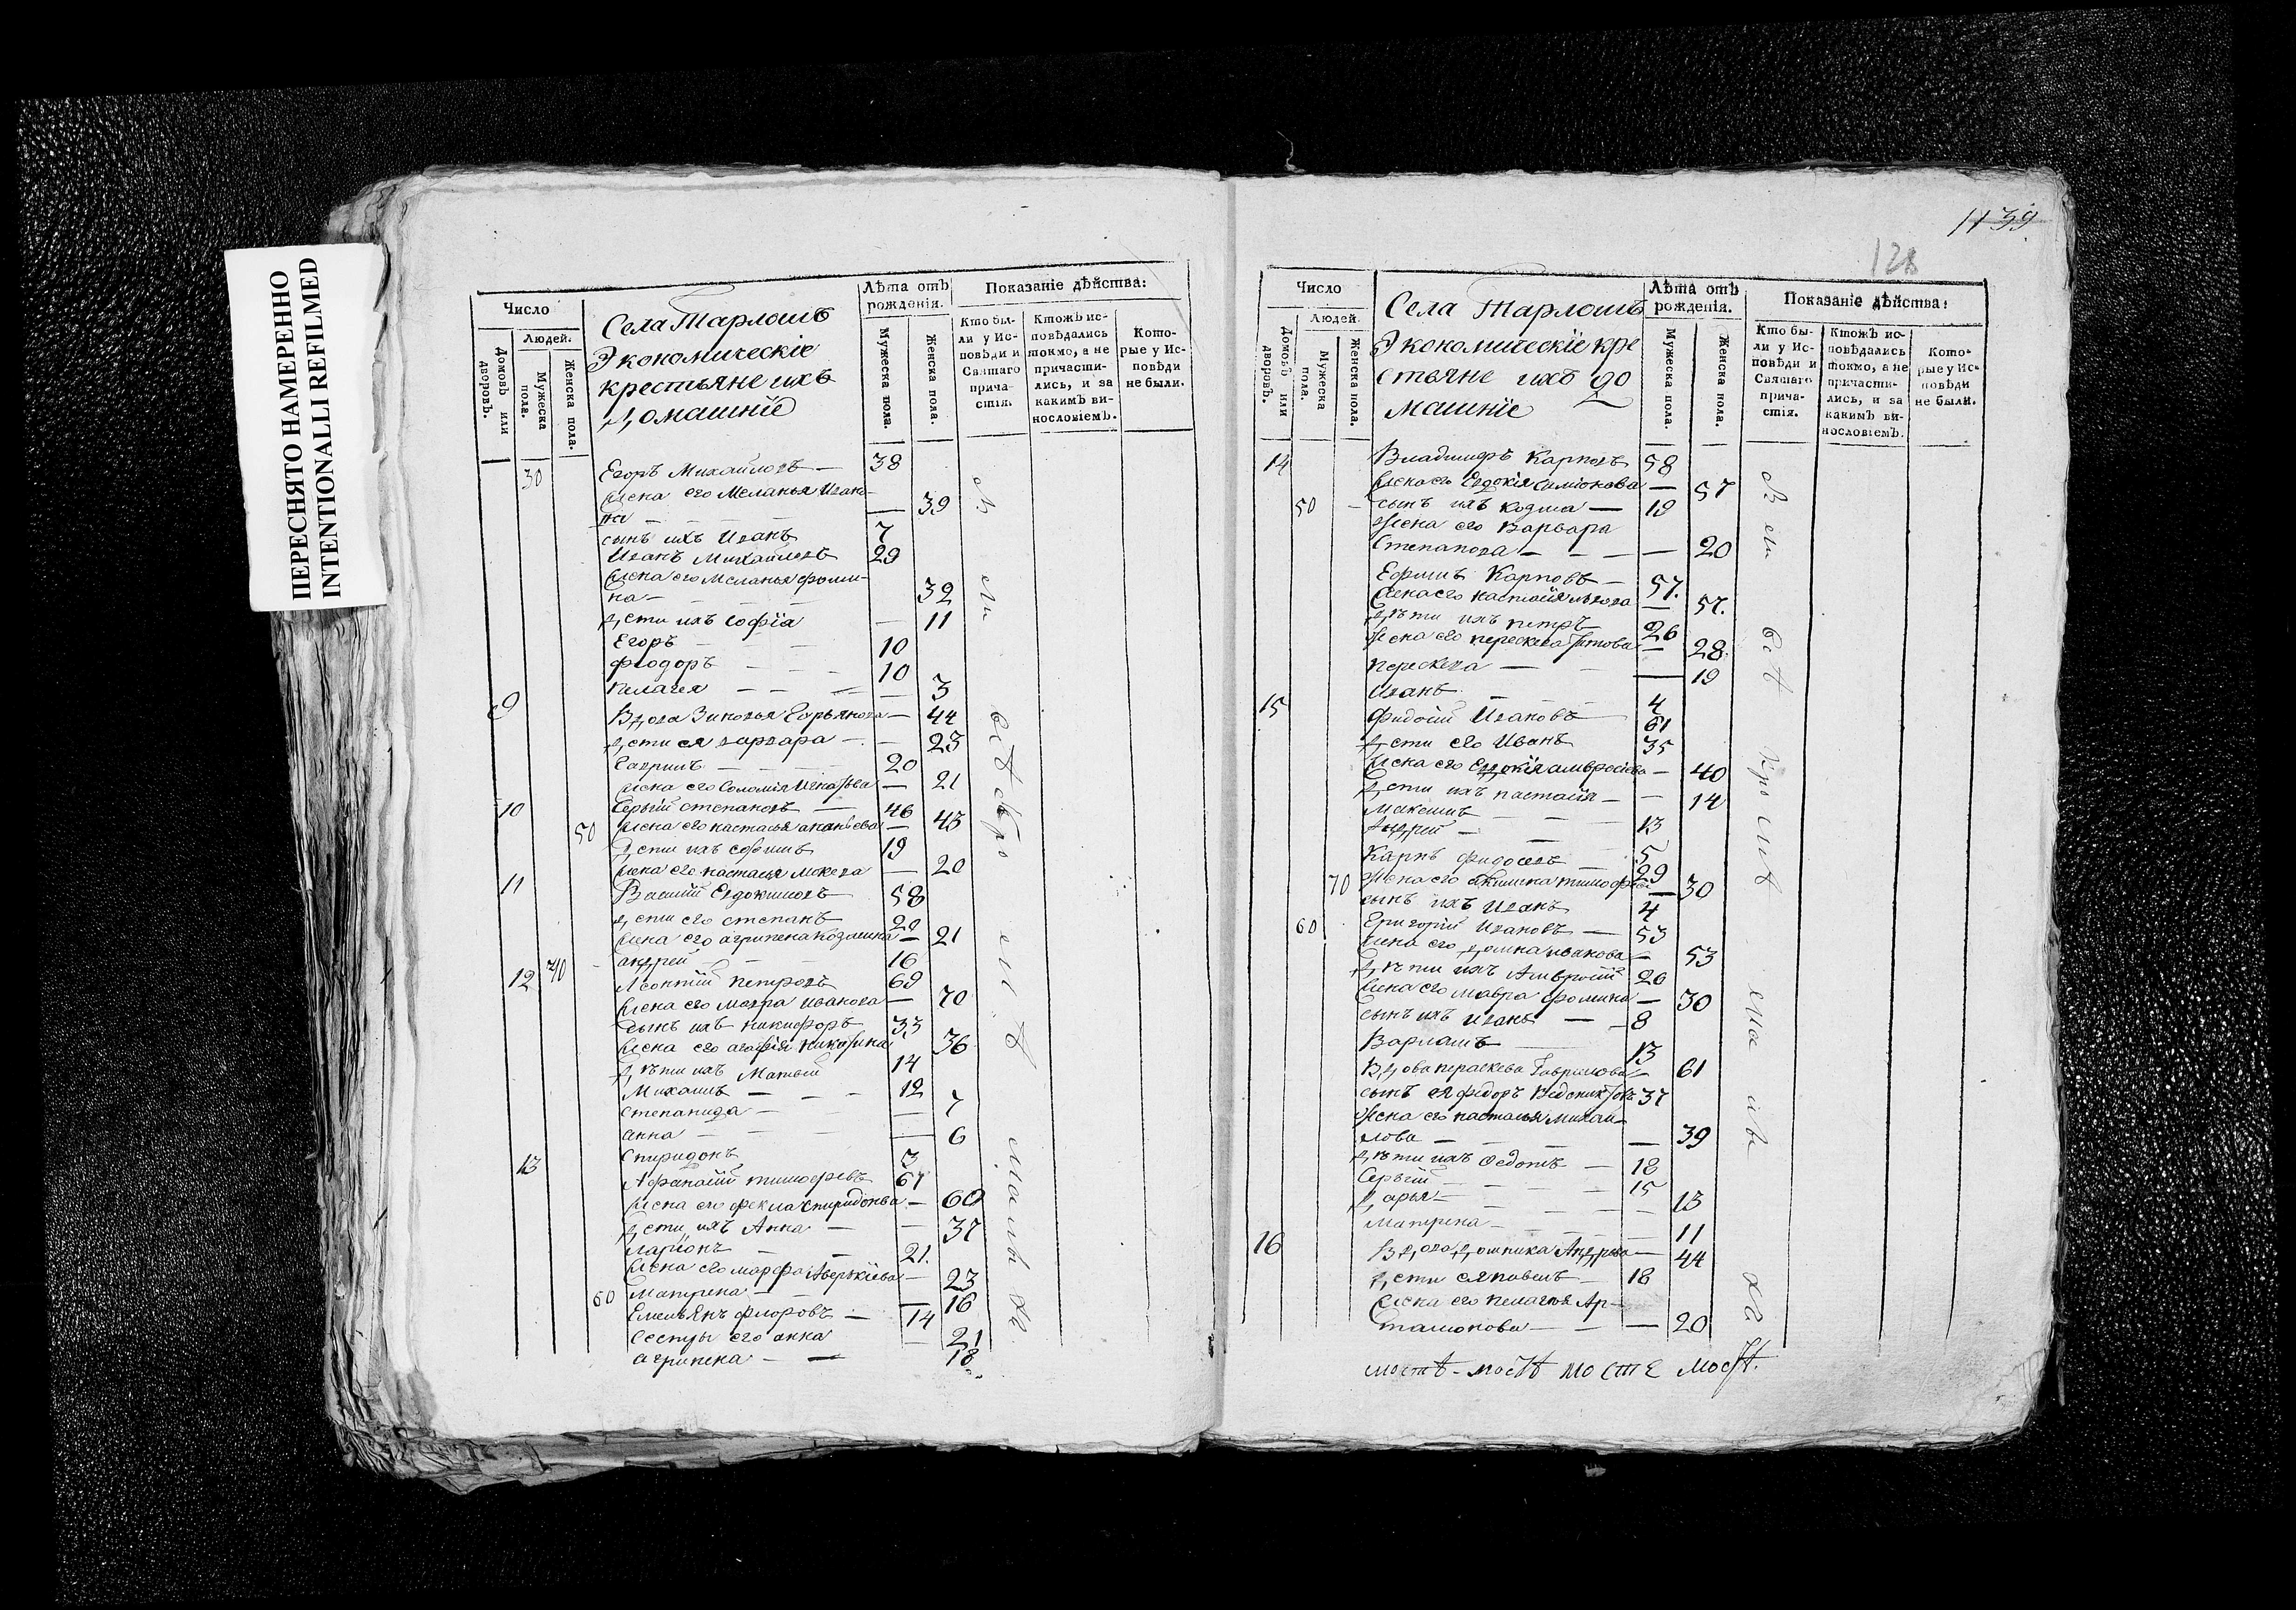 ПЕРЕСНЯТО НАМЕРЕННО
INTENTIONALLI REFILMED
Число
Людей.
Домовъ или дворовъ.
Мужеска пола.
Женска пола.
Села Тарлошъ
Экономическіе
крестьяне ихъ
Домашніе
Лѣта отъ рожденія.
Мужеска пола.
Женска пола.
Показаніе дѣйства:
Кто бы-
ли у Ис-
повѣди и
Святаго
прича-
стія.
Ктожъ ис-
повѣдались
токмо, а не
причасти-
лись, и за
какимъ ви-
нословіемъ.
Кото-
рые у Ис-
повѣди
не были.
30 Егоръ Михайловъ — 38
жена его Меланья Ивано-
на — 39
сынъ ихъ Иванъ 7
Иванъ Михайловъ 29
жена его Меланья фоми-
на — 32
дѣти ихъ Софіа — 11
Егоръ — 10
Феодоръ — 10
Пелагея — 3
9 Вдова Зиновья — 44
дѣти ея варвара — 23
Гаврилъ — 20
жена его Соломія — 21
10 Сергій степановъ — 46
50 жена его настасья ананьева — 43
дѣти ихъ ефимъ 19
жена его настасья — 20
11 Василій Евдокимовъ 58
дѣти его степанъ 20
жена его агрипена Козмина — 21
андрей — 16
12 40 Леонтій Петровъ 69
жена его мавра иванова — 70
сынъ ихъ никифоръ 33
жена его агафія 36
дѣти ихъ Матвей 14
Михаилъ — 12
степанида — 7
анна — 6
спиридонъ 3
13 Афанасій тимофеевъ 67
жена его фекла спиридонва — 60
дѣти ихъ Анна — 37
ларіонъ — 21.
жена его марфа Аверкіева — 23
60 матрена — 16
Емельянъ флоровъ — 14
Сестры его анна — 21
агрипена — 18
1139
128
Число
Людей.
Домовъ или дворовъ.
Мужеска пола.
Женска пола.
Села Тарлошъ
Экономическіе кре
стьяне ихъ до
машніе
Лѣта отъ рожденія.
Мужеска пола.
Женска пола.
Показаніе дѣйства:
Кто бы-
ли у Ис-
повѣди и
Святаго
прича-
стія.
Ктожъ ис-
повѣдались
токмо, а не
причасти-
лись, и за
какимъ ви-
нословіемъ.
Кото-
рые у Ис-
повѣди
не были.
14 Владимиръ Карповъ 58
жена его Евдокія Симіонова — 57
50 сынъ ихъ козма — 19
жена его Варвара
Степанова — 20
Ефимъ Карповъ — 57.
жена его настасія — 57.
дѣти ихъ петръ 26
жена его перескева Титова — 28
перескева — 19
Иванъ — 4
15 Федосій Ивановъ 61
дѣти его Иванъ 35
жена его Евдокія амвросіева — 40
дѣти ихъ настасія — 14
Максимъ — 13
Андрей — 5
Карпъ Федосеевъ — 29
70 Жена его тимофеева — 30
сынъ ихъ Иванъ 4
60 Григорій Ивановъ — 53
жена его домна иванова — 53
дѣти ихъ Амвросій 26
жена его мавра фомина — 30
сынъ ихъ Иванъ — 8
Варламъ 13
Вдова параскева Гаврилова — 61
сынъ ея федоръ 37
Жена его настасья михаи-
лова — 39
дѣти ихъ Федотъ — 18
Сергій — 15
дарья — 13
Матрена — 11
16 Вдова домника Андреева — 44
дѣти ея павелъ — 18
жена его пелагея Ар-
тамонова — 20